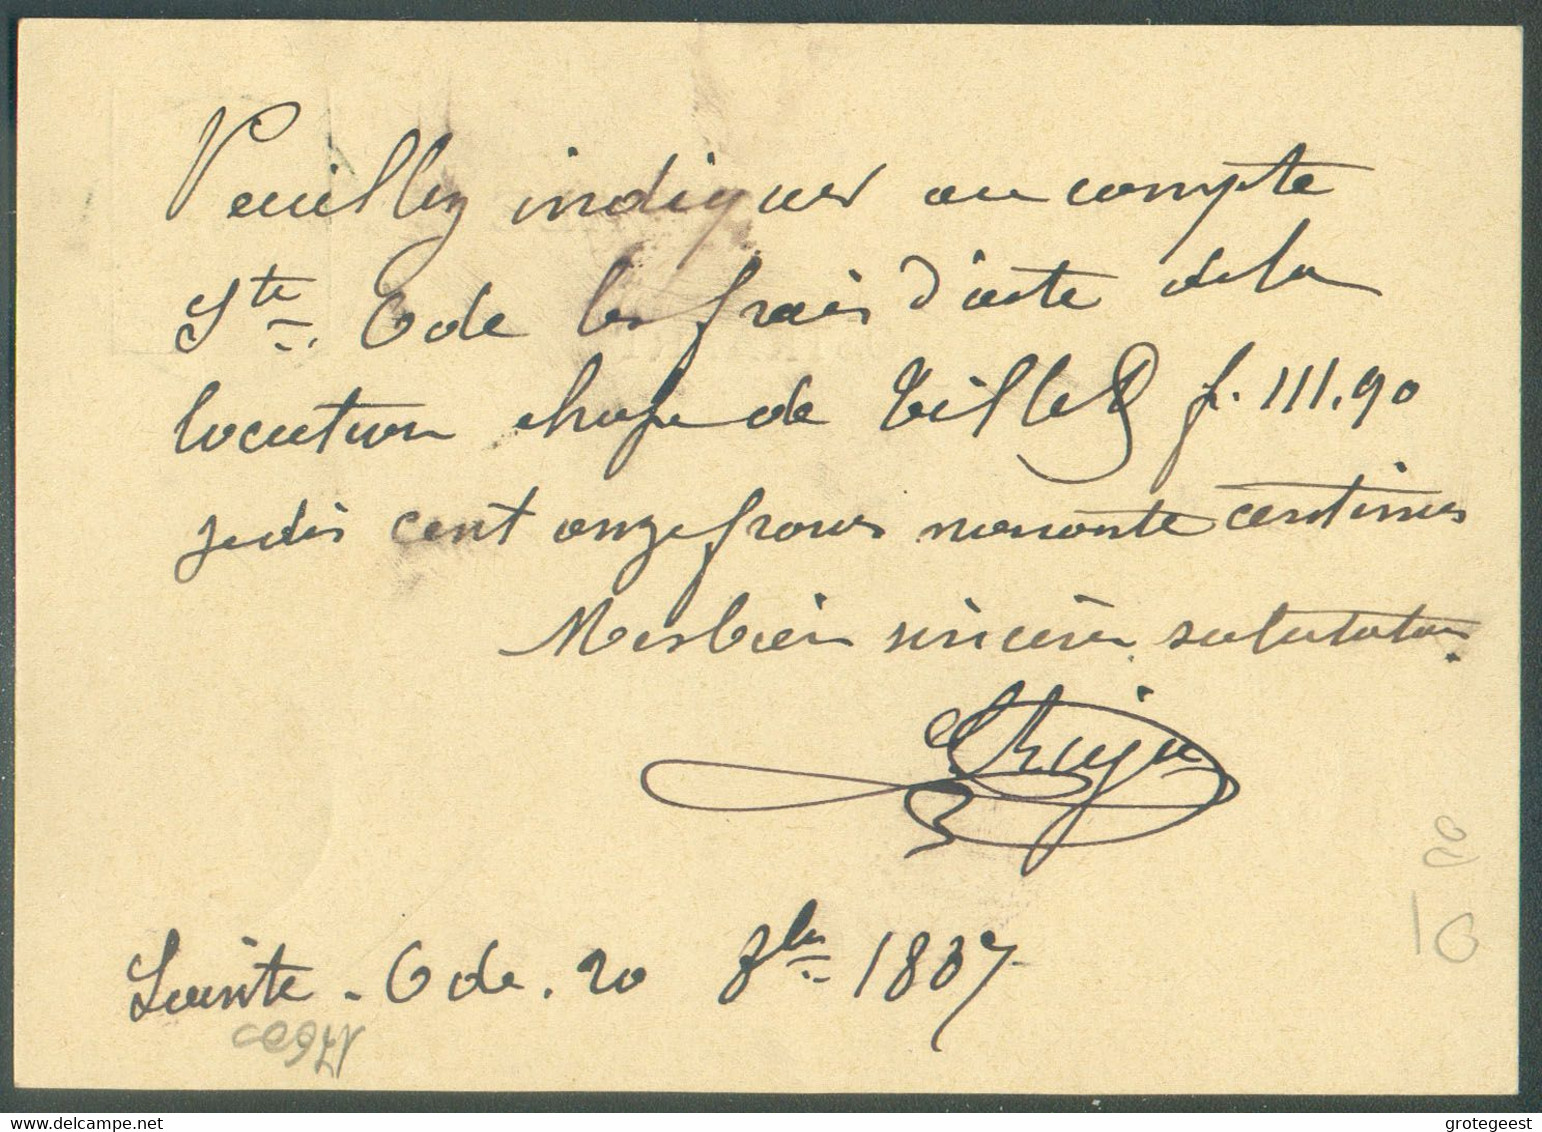 Veuillez indiquer au compte
Ste. Ode les frais d'acte de la
location chasse de Tillet f. 111.90
je dis cent onze francs nonante centimes
Mes bien sincères salutations.
Sainte-Ode. 20 1887
delcampe.net
grotegeest